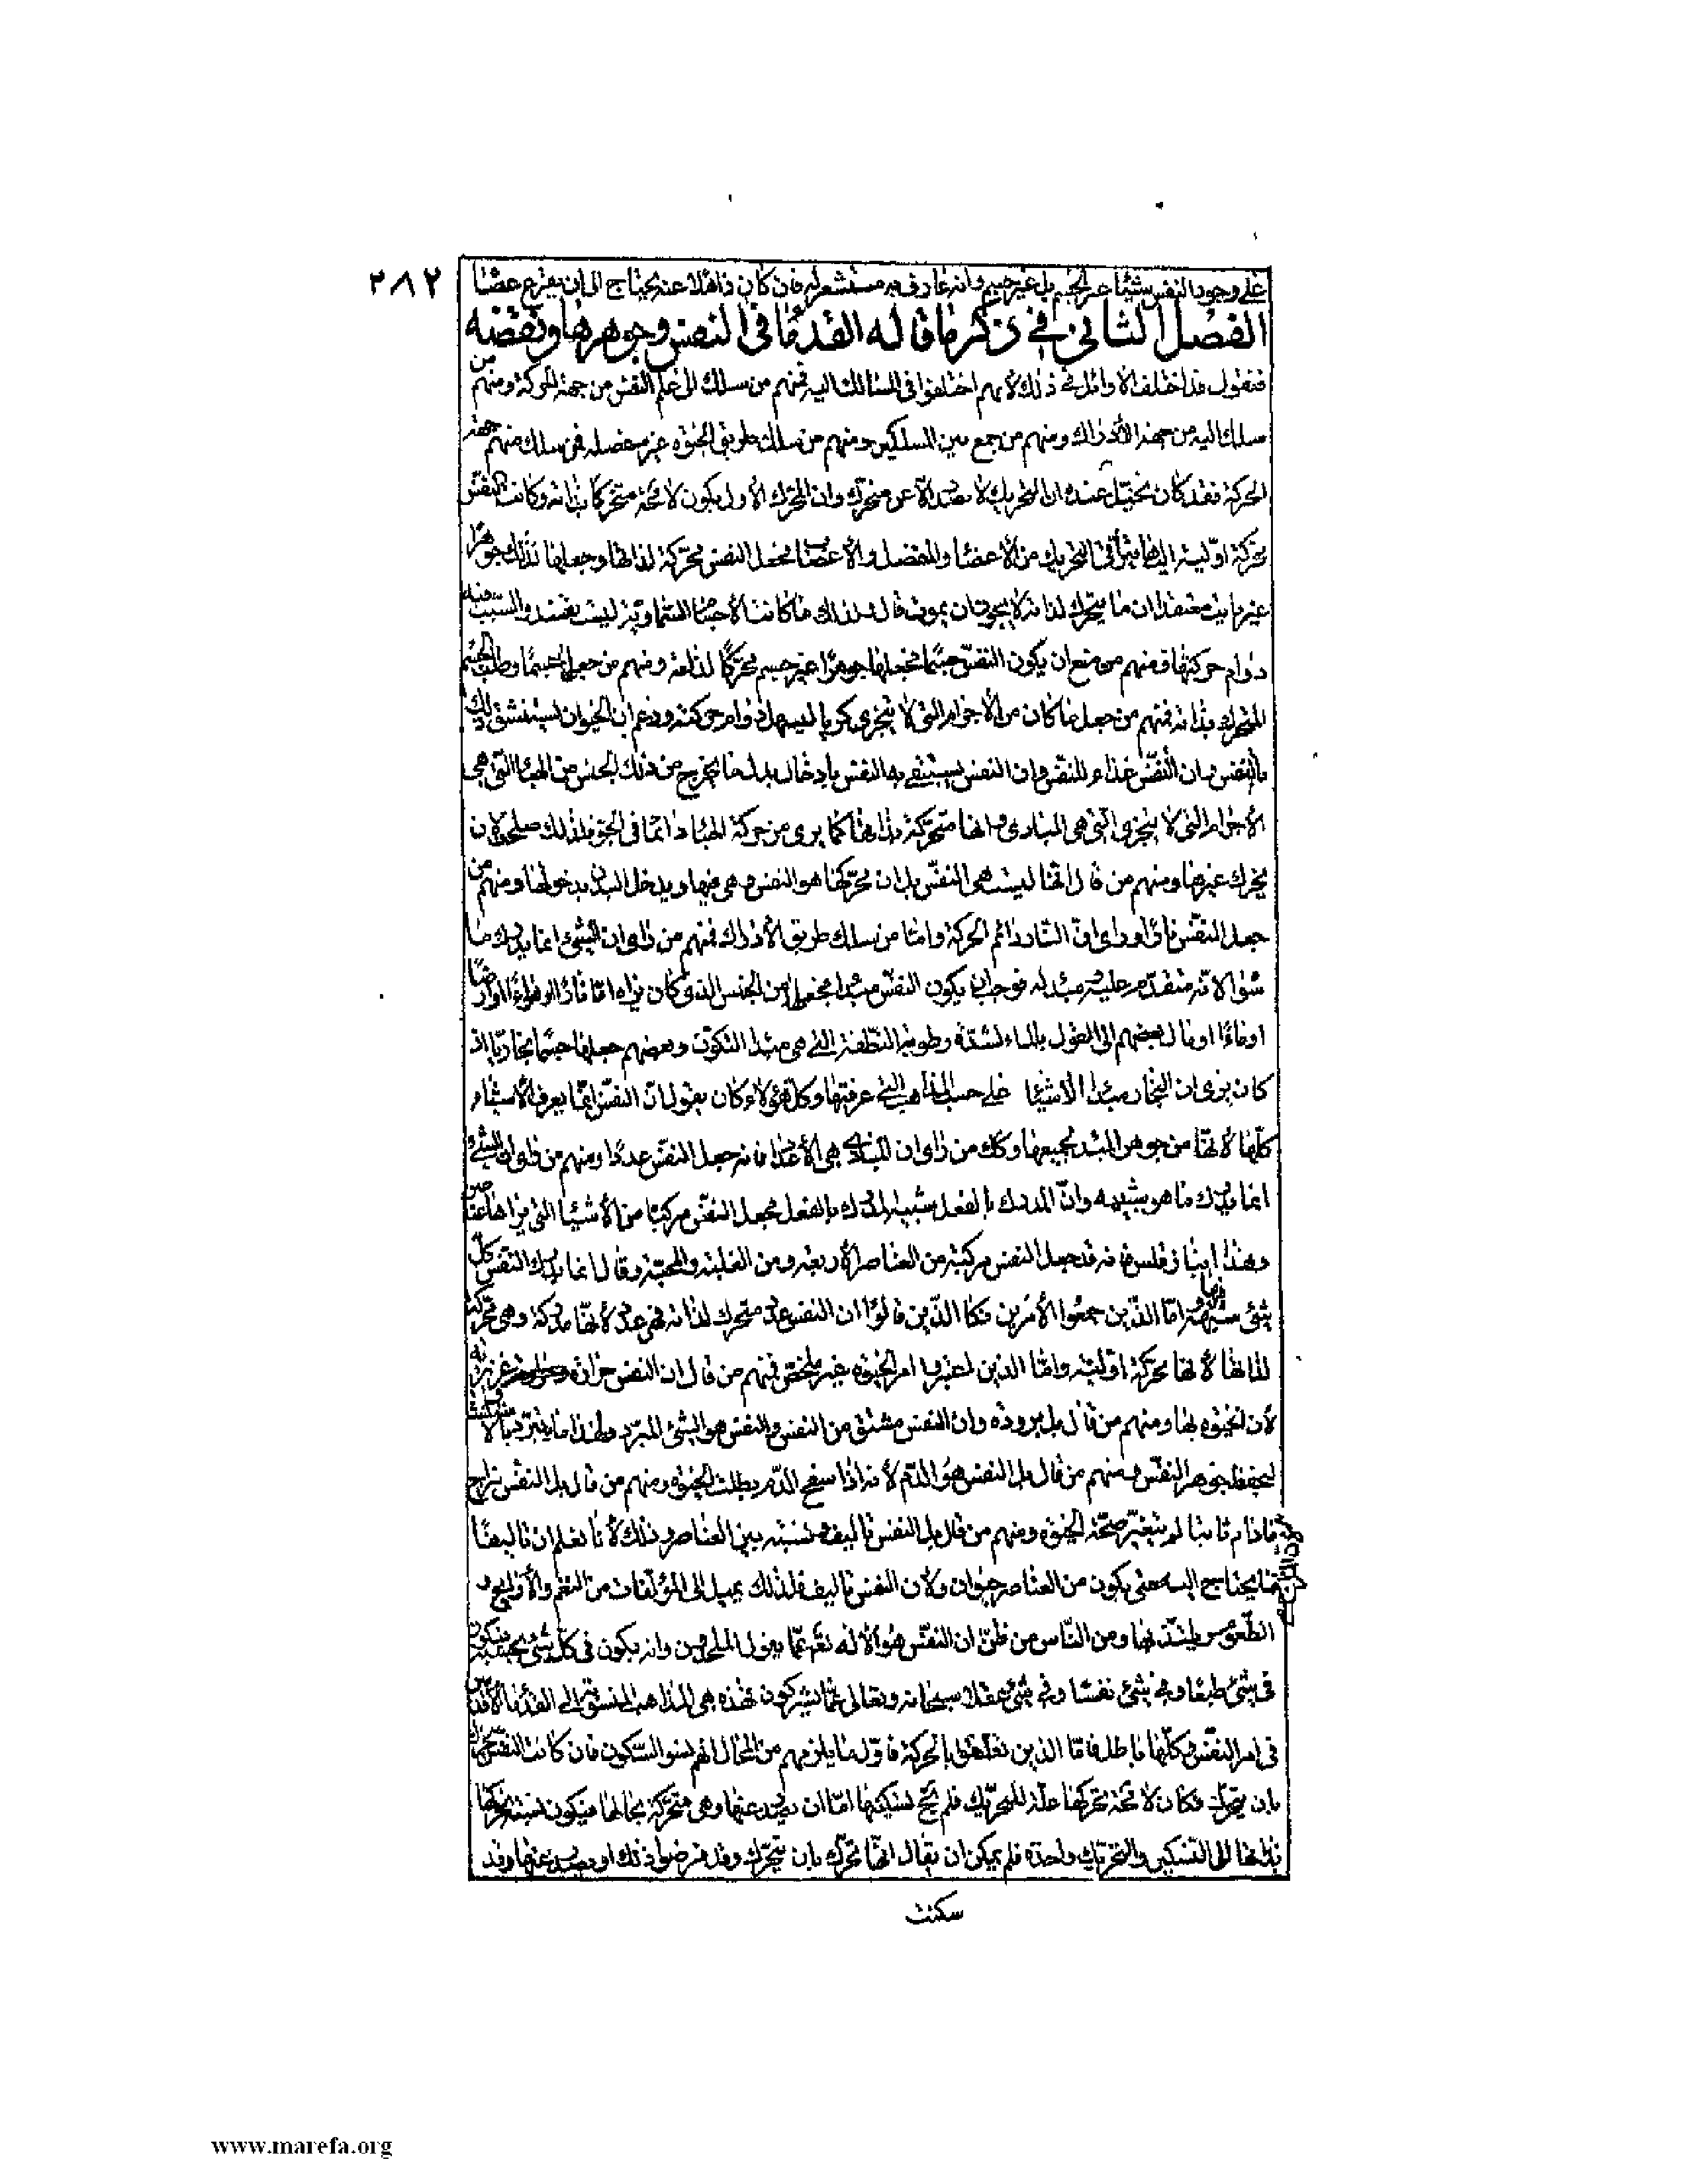 ٢٨٢
على وجود النفس شيئا غير الجسم بل غير جسم وانه عارف به مستشعر له فان كان ذاهلا عنه يحتاج الى ان يقرع عصاه
الفصل الثاني في ذكر ما قاله القدما في النفس وجوهرها ونقضه
فنقول قد اختلف الاوائل في ذلك لانهم اختلفوا في المسالك اليه فمنهم من سلك الى علم النفس من جهة الحركة ومنهم من
سلك اليه من جهة الأدراك ومنهم من جمع بين المسلكين ومنهم من سلك طريق الحيوة غير مفصلة فمن سلك منهم جهة
الحركة فقد كان تخيل عنده ان التحريك لا يصدر الا عن متحرك وان المحرك الأول يكون لا محة متحركا بذاته وكانت النفس
محركة اولية اليها يتراقى التحريك من الأعضا والعضل والأعصاب فجعل النفس متحركة لذاتها وجعلها لذلك جوهرا
غير مايت معتقدا ان ما يتحرك لذاته لا يجوز ان يموت قال ولذلك ما كانت الأجسا السماوية ليست تفسد والسبب فيه
دوام حركتها فمنهم من منع ان يكون النفس جسما فجعلها جوهرا غير جسم محركا لذاته ومنهم من جعلها جسما وطلب الجسم
المتحرك بذاته فمنهم من جعل ما كان من الأجرام التي لا تتجزى كريا ليسهل دوام حركته وزعم ان الحيوان يستنشق ذلك
بالتنفس وان النفس غذاء للنفس وان النفس يستبقى به النفس بادخال بدل ما يخرج من ذلك الجنس من الهبا التي هي
الأجرام التي لا يتجزى التي هي المبادى وانها متحركة بذاتها كما يرى من حركة الهباء دائما في الجو فلذلك صلحت لان
يحرك غيرها ومنهم من قال انها ليست هي النفس بل ان محركها هو النفس وهي فيها ويدخل البدن بدخولها ومنهم من
جعل النفس نارا وراى ان النار دائم الحركة واما من سلك طريق الأدراك فمنهم من راى ان الشئ انما يدرك ما
سواه لانه متقدم عليه ومبدا له فوجب ان يكون النفس مبدا فجعلها من الجنس الذى كان يراه اما نارا او هواء او ارضا
او ماءا ومال بعضهم الى القول بالماء لشدة رطوبة النطفة التي هي مبدا التكون وبعضهم جعلها جسما بخاريا اذ
كان يرى ان البخار مبدا الأشيا على حسب المذاهب التي عرفتها وكل هؤلاء كان يقول ان النفس انما يعرف الأشياء
كلها لأنها من جوهر المبدا لجميعها وكك من راى ان المبادى هي الأعداد فانه جعل النفس عددا ومنهم من راى ان الشئ
انما يدرك ما هو شبيهه وان المدرك بالفعل شبيه المدرك بالفعل فجعل النفس مركبا من الأشيا التي يراها عناصر
وهذا انباذقلس فانه قد جعل النفس مركبة من العناصر الأربعة ومن الغلبة والمحبة وقال انما يدرك النفس كل
شئ بشبيهه فيها واما الذين جمعوا الأمرين فكالذين قالوا ان النفس عدد متحرك لذاته فهي عدد لأنها مدركة وهي محركة
لذاتها لأنها محركة اولية واما الذين اعتبروا امر الحيوة غير ملخص فمنهم من قال ان النفس حرارة غريزية
لأن الحيوة بها ومنهم من قال بل برودة وان النفس مشتق من النفس والنفس هو الشئ المبرد ولهذا ما يتبرد بالاستنشاق
ليحفظ جوهر النفس ومنهم من قال بل النفس هو الدم لأنه اذا سفح الدم بطلت الحيوة ومنهم من قال بل النفس مزاج
فما دام ثابتا لم يتغير صحت الحيوة ومنهم من قال بل النفس تاليف ونسبة بين العناصر وذلك لأنا نعلم ان تاليفا
ما يحتاج اليه حتى يكون من العناصر حيوان ولان النفس تاليف فلذلك يميل الى المؤلفات من النغم والأراييح و
الطعوم ويلتذ بها ومن الناس من ظن ان النفس هو الأله تع عما يقول الملحدون وانه يكون في كل شئ بحسبه فيكون
في شئ طبعا وفي شئ نفسا وفي شئ عقلا سبحانه وتعالى عما يشركون فهذه هي المذاهب المنسوبة الى القدما الأقدمين
في امر النفس وكلها باطل فاما الذين تعلقوا بالحركة فاول ما يلزمهم من المحال انهم نسوا السكون فان كانت النفس تحرك
بان يتحرك فكان لا محة تحركها علة للتحريك فلم يخ تسكينها اما ان يصدر عنها وهي متحركة بحالها فيكون نسبة تحركها
بذاتها الى التسكين والتحريك واحدة فلم يمكن ان يقال انها تحرك بان يتحرك وقد فرضوا ذلك او يصدر عنها وقد
سكنت
www.marefa.org